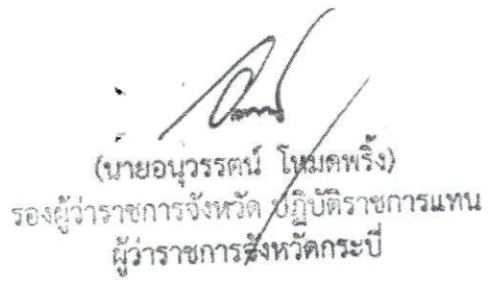 (นายอนุวรรตน์ โหมดพริ้ง)
รองผู้ว่าราชการจังหวัด ปฏิบัติราชการแทน
ผู้ว่าราชการจังหวัดกระบี่